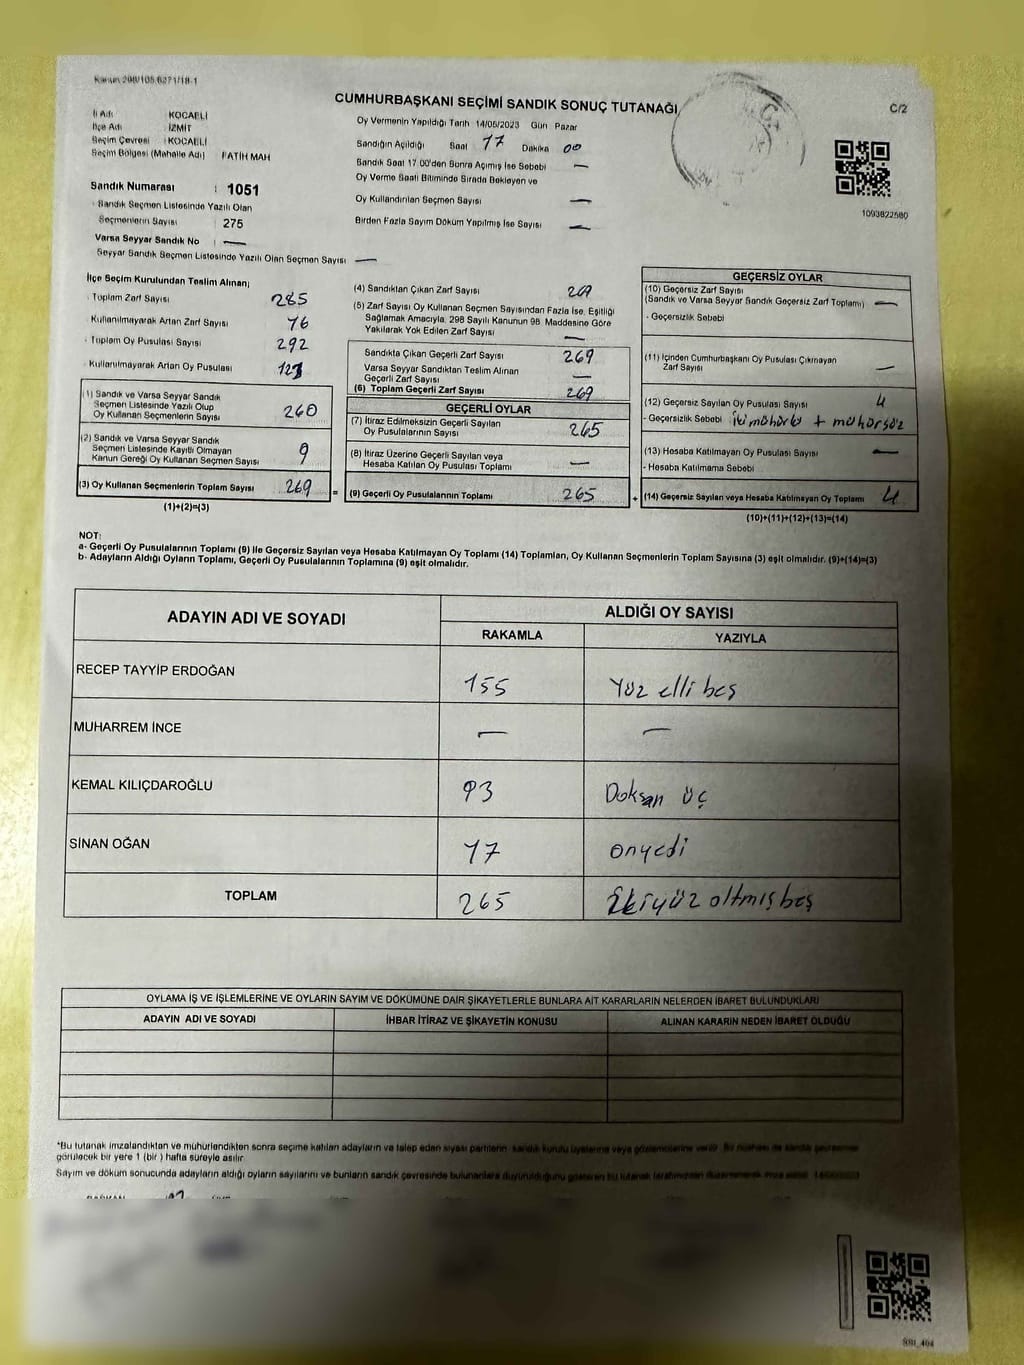 Kanun 298/105,6271/18-1
C/2
CUMHURBAŞKANI SEÇİMİ SANDIK SONUÇ TUTANAĞI
İl Adı : KOCAELİ
İlçe Adı : İZMİT
Seçim Çevresi : KOCAELİ
Seçim Bölgesi (Mahalle Adı) : FATİH MAH
Sandık Numarası : 1051
Sandık Seçmen Listesinde Yazılı Olan
Seçmenlerin Sayısı 275
Varsa Seyyar Sandık No : —
Seyyar Sandık Seçmen Listesinde Yazılı Olan Seçmen Sayısı —
Oy Vermenin Yapıldığı Tarih 14/05/2023 Gün Pazar
Sandığın Açıldığı Saat 17 Dakika 00
Sandık Saat 17.00'den Sonra Açımış İse Sebebi —
Oy Verme Saati Bitiminde Sırada Bekleyen ve
Oy Kullandırılan Seçmen Sayısı —
Birden Fazla Sayım Döküm Yapılmış İse Sayısı —
1093822580
İlçe Seçim Kurulundan Teslim Alınan;
Toplam Zarf Sayısı 285
Kullanılmayarak Artan Zarf Sayısı 16
Toplam Oy Pusulası Sayısı 292
Kullanılmayarak Artan Oy Pusulası
(1) Sandık ve Varsa Seyyar Sandık
Seçmen Listesinde Yazılı Olup
Oy Kullanan Seçmenlerin Sayısı 260
(2) Sandık ve Varsa Seyyar Sandık
Seçmen Listesinde Kayıtlı Olmayan
Kanun Gereği Oy Kullanan Seçmen Sayısı 9
(3) Oy Kullanan Seçmenlerin Toplam Sayısı 269
(1)+(2)=(3)
(4) Sandıktan Çıkan Zarf Sayısı 269
(5) Zarf Sayısı Oy Kullanan Seçmen Sayısından Fazla İse, Eşitliği
Sağlamak Amacıyla, 298 Sayılı Kanunun 98. Maddesine Göre
Yakılarak Yok Edilen Zarf Sayısı —
Sandıkta Çıkan Geçerli Zarf Sayısı 269
Varsa Seyyar Sandıktan Teslim Alınan
Geçerli Zarf Sayısı —
(6) Toplam Geçerli Zarf Sayısı 269
GEÇERLİ OYLAR
(7) İtiraz Edilmeksizin Geçerli Sayılan
Oy Pusulalarının Sayısı 265
(8) İtiraz Üzerine Geçerli Sayılan veya
Hesaba Katılan Oy Pusulası Toplamı —
= (9) Geçerli Oy Pusulalarının Toplamı 265
GEÇERSİZ OYLAR
(10) Geçersiz Zarf Sayısı
(Sandık ve Varsa Seyyar Sandık Geçersiz Zarf Toplamı) —
- Geçersizlik Sebebi
(11) İçinden Cumhurbaşkanı Oy Pusulası Çıkmayan
Zarf Sayısı —
(12) Geçersiz Sayılan Oy Pusulası Sayısı 4
- Geçersizlik Sebebi iki mühürlü + mühürsüz
(13) Hesaba Katılmayan Oy Pusulası Sayısı —
- Hesaba Katılmama Sebebi
+ (14) Geçersiz Sayılan veya Hesaba Katılmayan Oy Toplamı 4
(10)+(11)+(12)+(13)=(14)
NOT:
a- Geçerli Oy Pusulalarının Toplamı (9) ile Geçersiz Sayılan veya Hesaba Katılmayan Oy Toplamı (14) Toplamları, Oy Kullanan Seçmenlerin Toplam Sayısına (3) eşit olmalıdır. (9)+(14)=(3)
b- Adayların Aldığı Oyların Toplamı, Geçerli Oy Pusulalarının Toplamına (9) eşit olmalıdır.
ADAYIN ADI VE SOYADI
ALDIĞI OY SAYISI
RAKAMLA YAZIYLA
RECEP TAYYİP ERDOĞAN 155 Yüz elli beş
MUHARREM İNCE — —
KEMAL KILIÇDAROĞLU 93 Doksan üç
SİNAN OĞAN 17 onyedi
TOPLAM 265 İkiyüz altmış beş
OYLAMA İŞ VE İŞLEMLERİNE VE OYLARIN SAYIM VE DÖKÜMÜNE DAİR ŞİKAYETLERLE BUNLARA AİT KARARLARIN NELERDEN İBARET BULUNDUKLARI
ADAYIN ADI VE SOYADI İHBAR İTİRAZ VE ŞİKAYETİN KONUSU ALINAN KARARIN NEDEN İBARET OLDUĞU
*Bu tutanak imzalandıktan ve mühürlendikten sonra seçime katılan adayların ve talep eden siyasi partilerin sandık kurulu üyelerine veya gözlemcilerine verilir. Bu nüshası da sandık çevresinde
görülecek bir yere 1 (bir) hafta süreyle asılır.
Sayım ve döküm sonucunda adayların aldığı oyların sayılarını ve bunların sandık çevresinde bulunanlara duyurulduğunu gösteren bu tutanak tarafımızdan düzenlenerek imza edildi. 14/05/2023